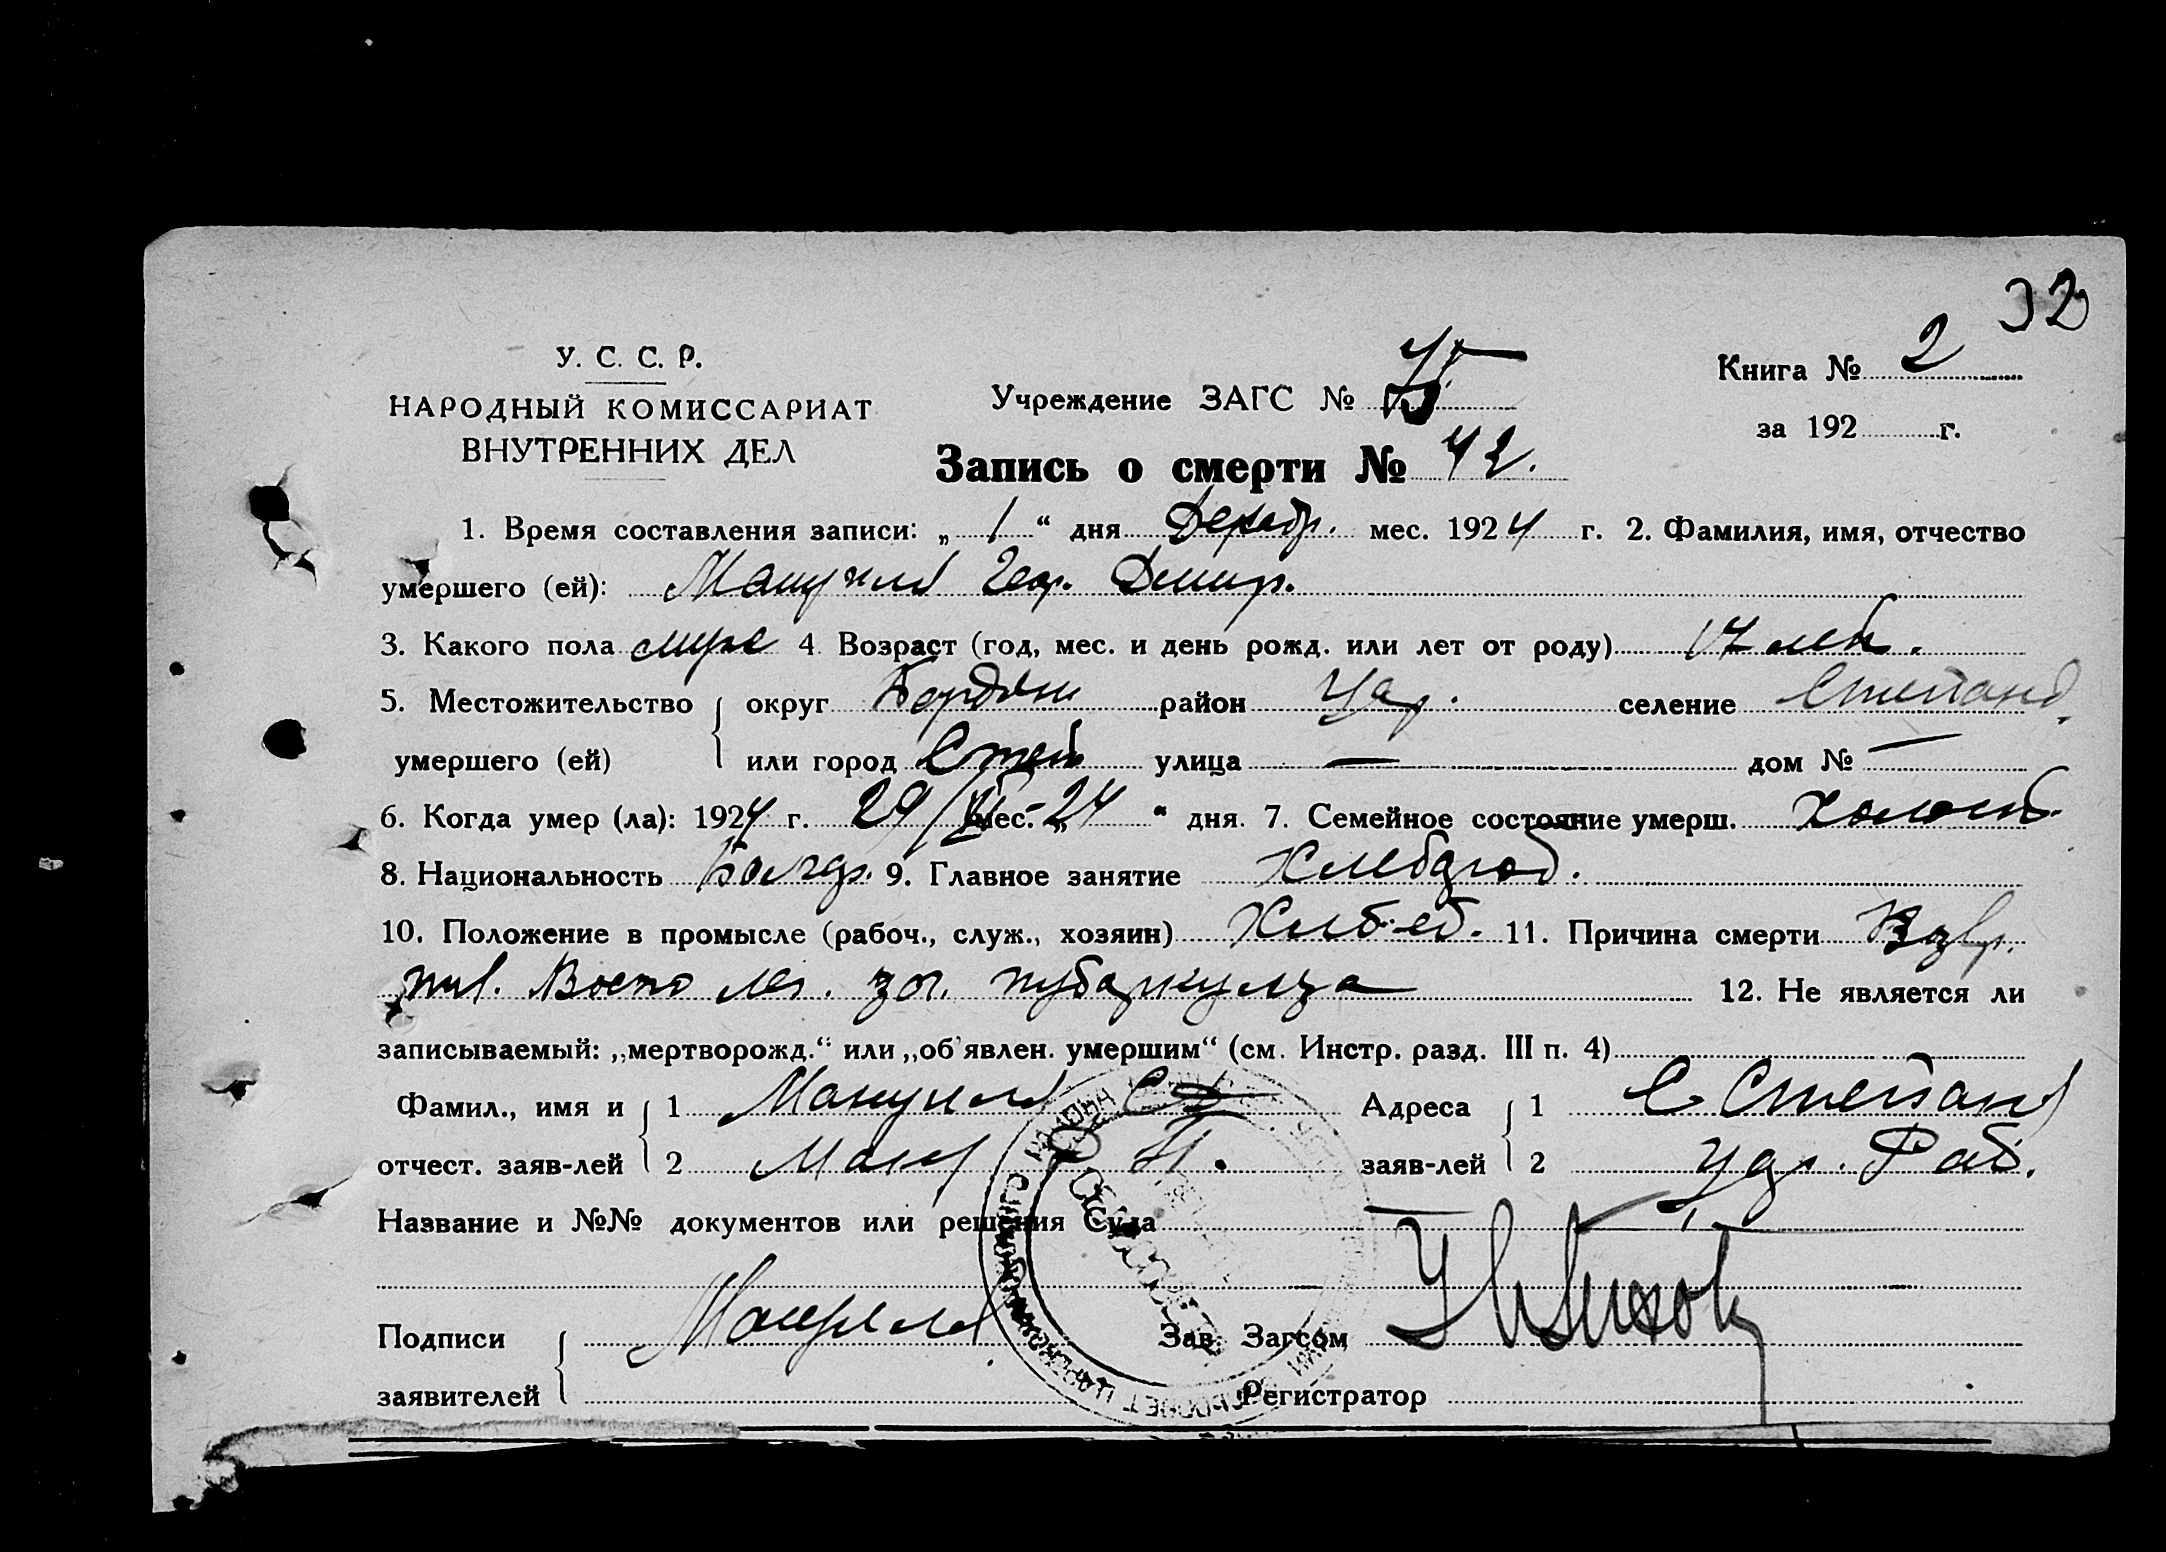 32
У. С. С. Р.
НАРОДНЫЙ КОМИССАРИАТ
ВНУТРЕННИХ ДЕЛ
Учреждение ЗАГС №
Книга № 2
за 192 г.
Запись о смерти № 42.
1. Время составления записи: „ 1 “ дня Декабр. мес. 1924 г. 2. Фамилия, имя, отчество
умершего (ей): Мануила Геор. Дмитр.
3. Какого пола муже 4. Возраст (год, мес. и день рожд. или лет от роду) 17 лет.
5. Местожительство округ Бердян район Цар. селение Степанов
умершего (ей) или город Степ улица — дом № —
6. Когда умер (ла): 1924 г. 29/XI мес. „ 24 “ дня. 7. Семейное состояние умерш. Холост.
8. Национальность Болгар. 9. Главное занятие Хлебороб.
10. Положение в промысле (рабоч., служ., хозяин) 11. Причина смерти
Восп лег. туберкулеза 12. Не является ли
записываемый: „мертворожд.“ или „об’явлен. умершим“ (см. Инстр. разд. III п. 4)
Фамил., имя и 1 Мануила Адреса 1 С Степан
отчест. заяв-лей 2 Ману Н. заяв-лей 2 Цар. Раб.
Название и №№ документов или решения Суда
Подписи Мануила Зав. Загсом
заявителей Регистратор